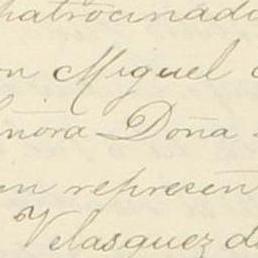 patrocinado
on Miguel
eñora Doña
en represen
Velasquez de